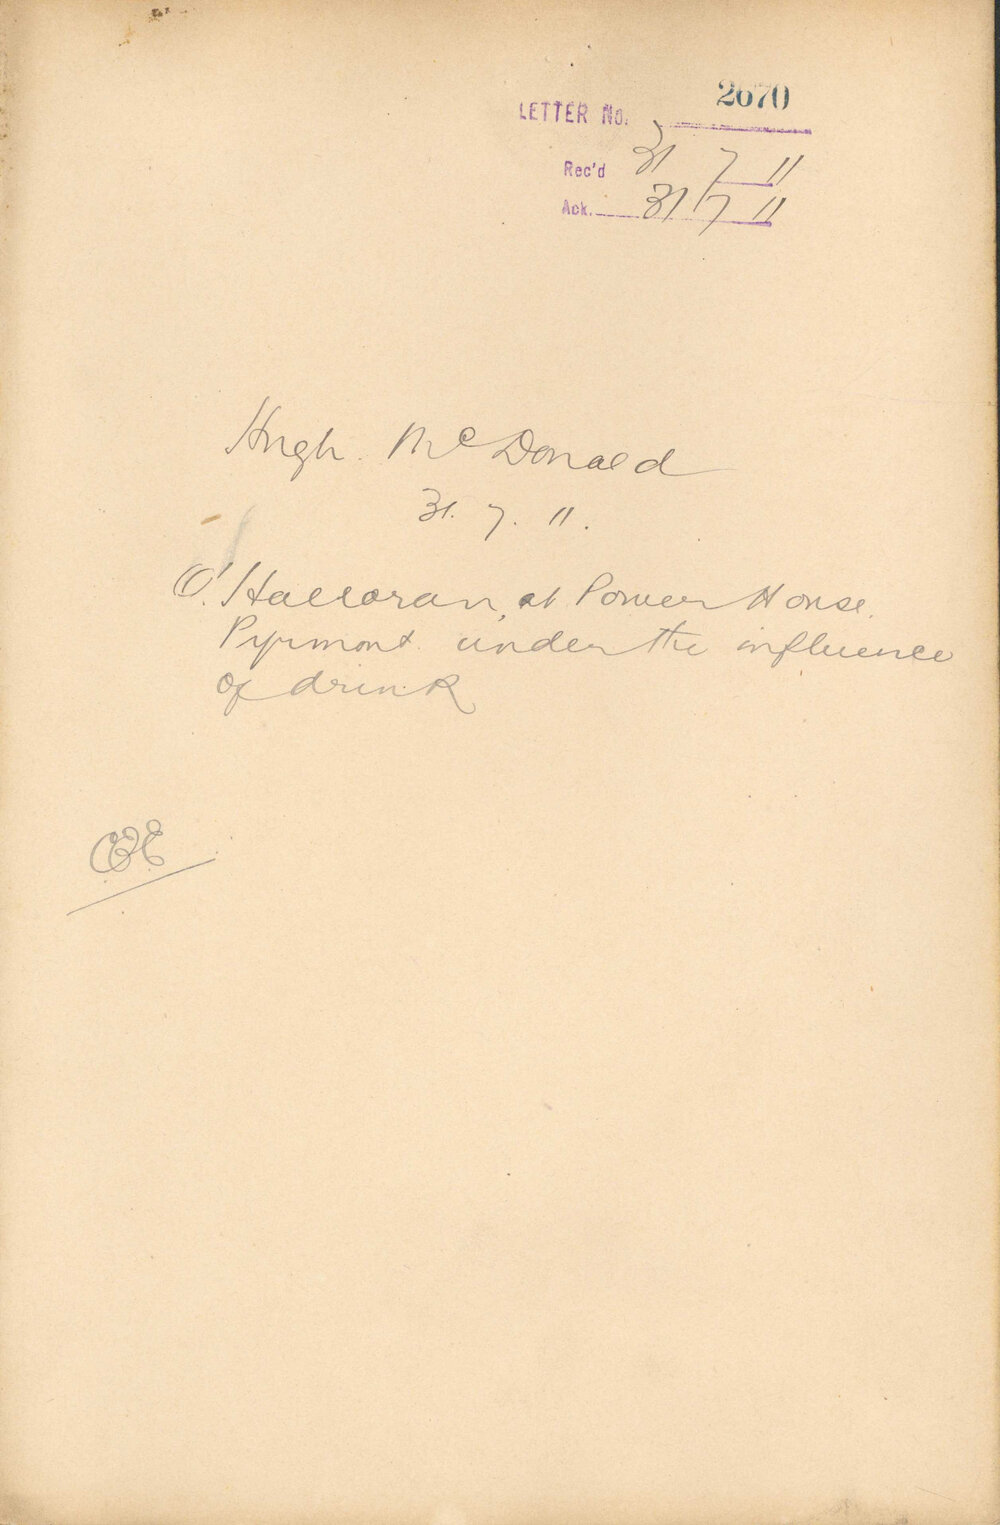 LETTER No. 2670
Rec'd 31 7 11
Ack. 31 7 11
Hugh McDonald
31. 7. 11.
O'Halloran, at Power House.
Pyrmont under the influence
of drink